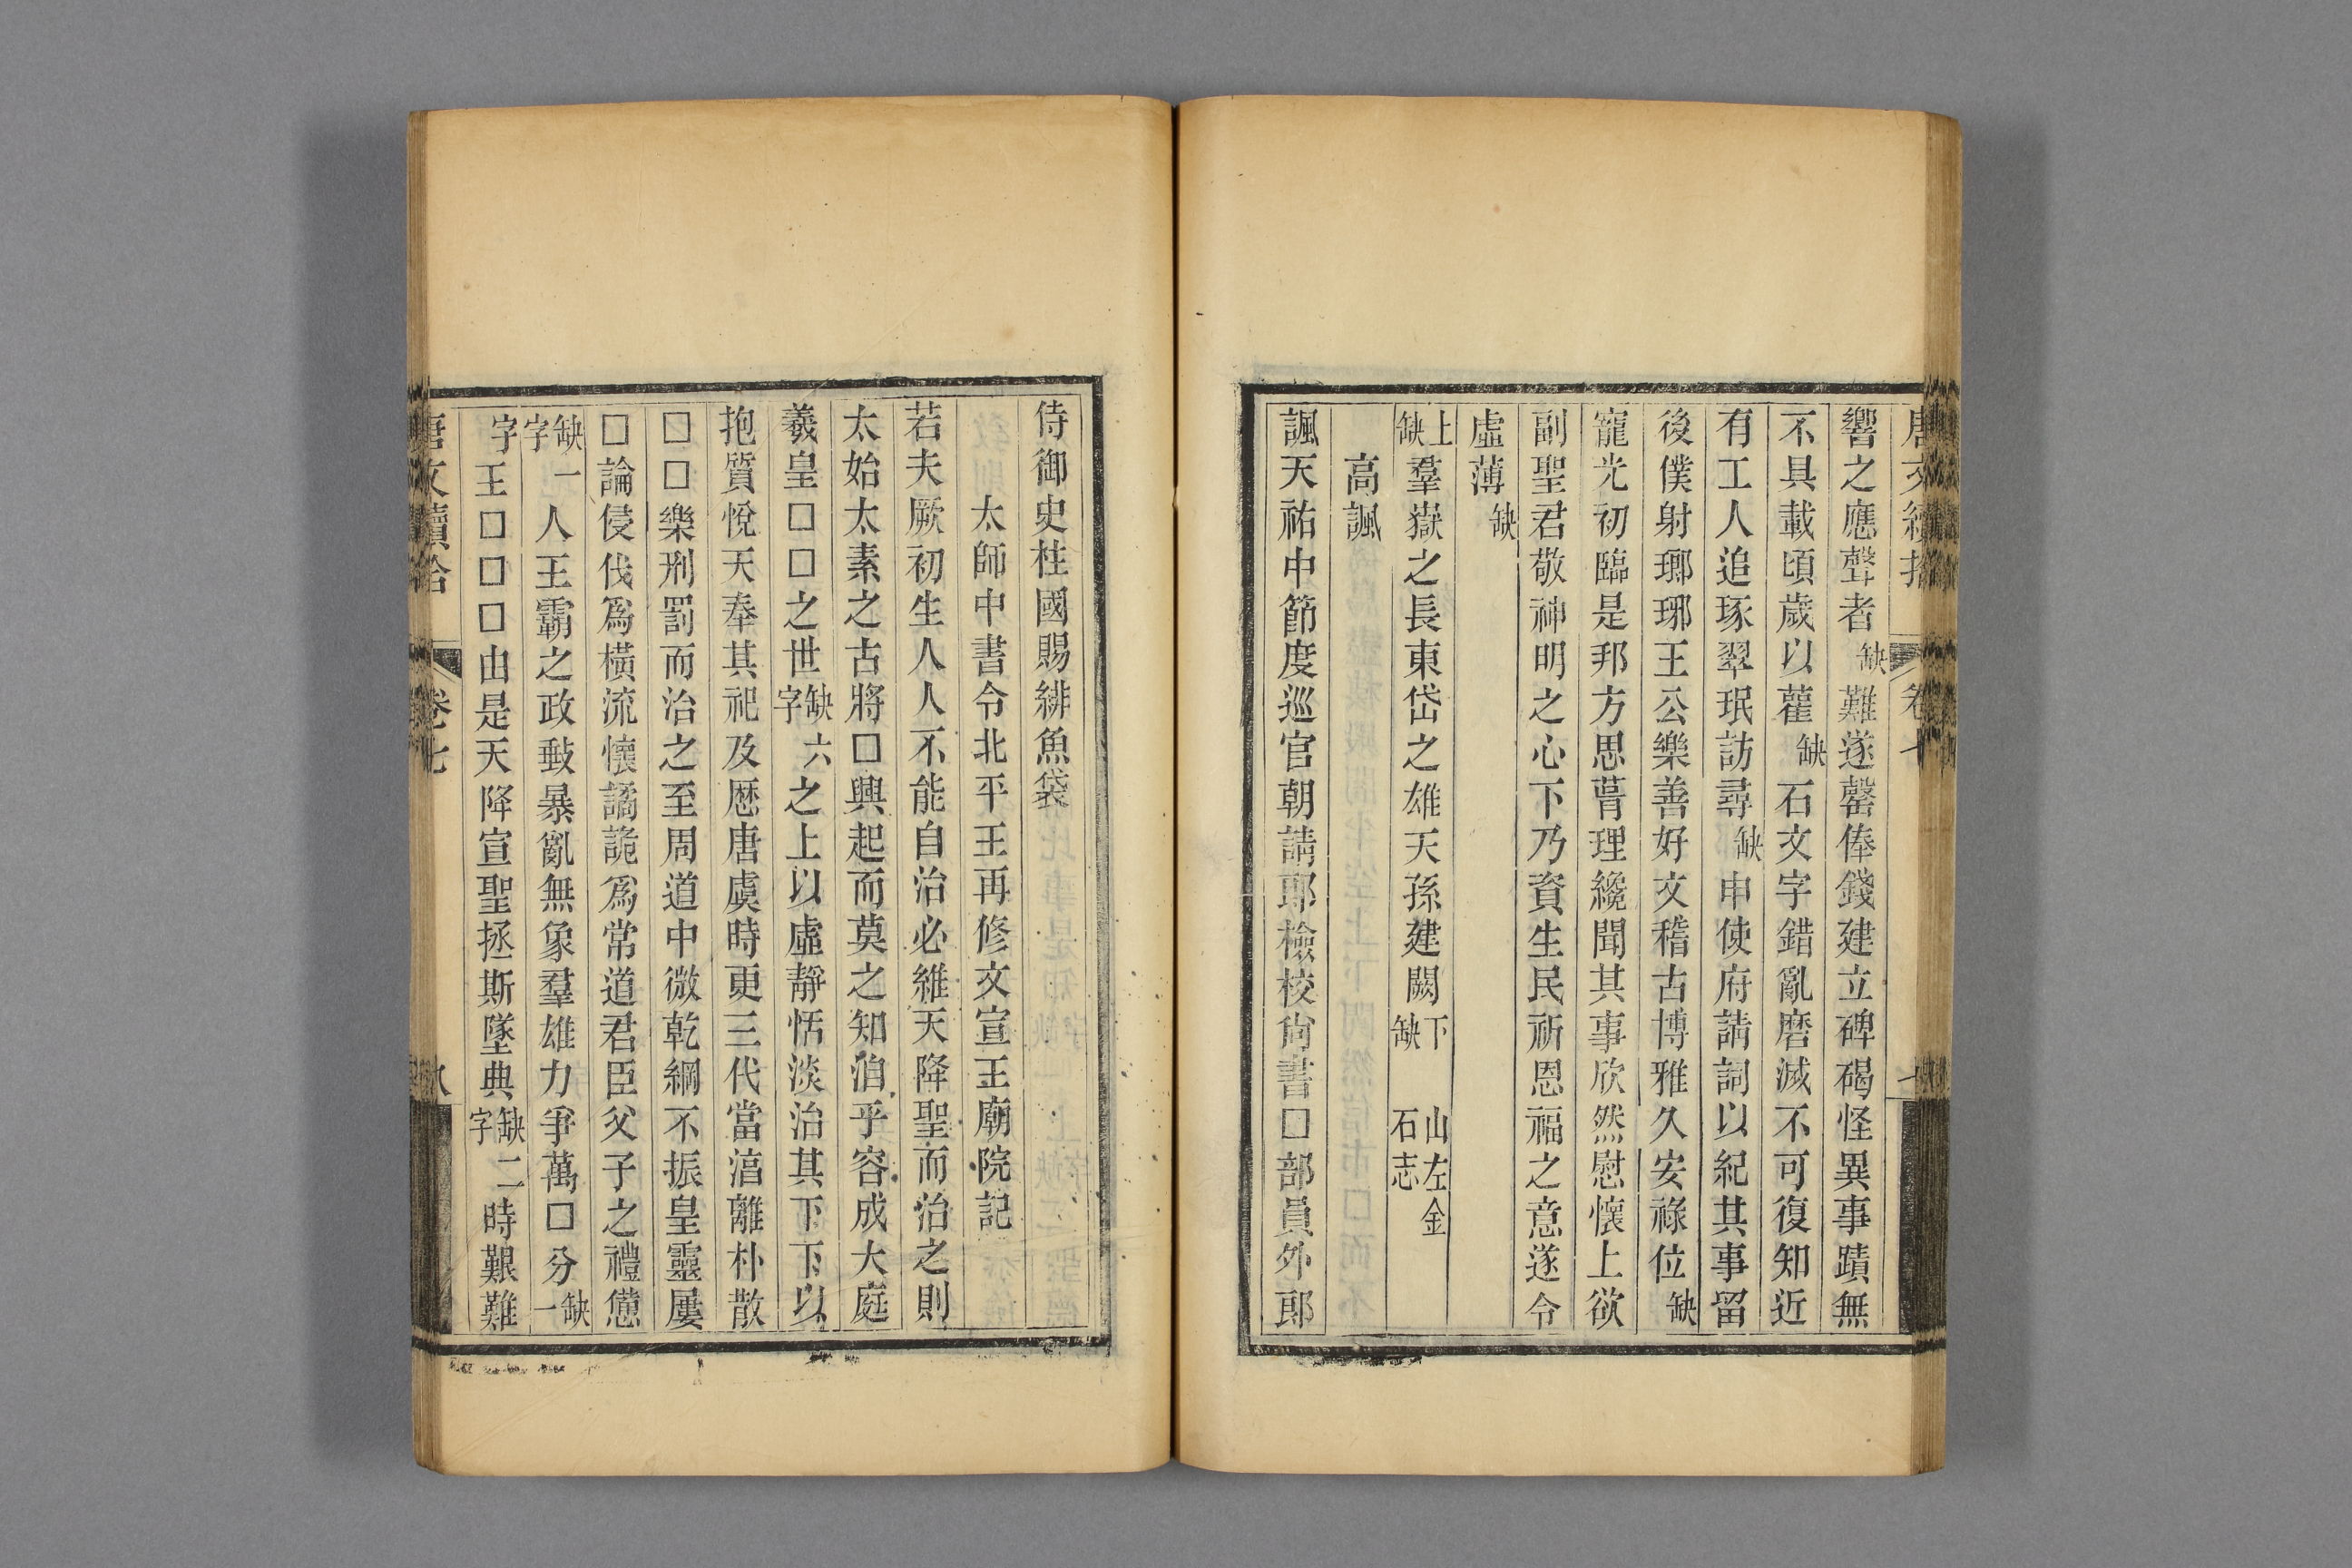 響之應聲者缺難遂罄俸錢建立碑碣怪異事蹟無
不具載頃歲以雚缺石文字錯亂磨滅不可復知近
有工人追琢翠珉訪尋缺申使府請詞以紀其事留
後僕射瑯琊王公樂善好文稽古博雅久安祿位缺
寵光初臨是邦方思胥理纔聞其事欣然慰懷上欲
副聖君敬神明之心下乃資生民祈恩福之意遂令
虛薄缺
上缺羣嶽之長東岱之雄天孫建闕下缺 山左金石志
高諷
諷天祐中節度巡官朝請郎檢校尚書□部員外郎
侍御史柱國賜緋魚袋
太師中書令北平王再修文宣王廟院記
若夫厥初生人人不能自治必維天降聖而治之則
太始太素之古將□興起而莫之知洎乎容成大庭
羲皇□□之世缺六字之上以虛靜恬淡治其下下以
抱質悅天奉其祀及歷唐虞時更三代當湻離朴散
□□樂刑罰而治之至周道中微乾綱不振皇靈屢
□論侵伐爲橫流懷譎詭爲常道君臣父子之禮憊
缺一字人王霸之政㪅暴亂無象羣雄力爭萬□分缺一
字王□□□由是天降宣聖拯斯墜典缺二字時艱難
唐文續拾 卷七 八